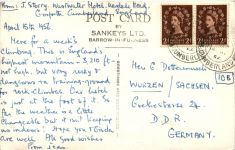 From: J. Storry. Wastwater Hotel, Wasdale Head,
Gosforth, Cumberland, England
April 15th, 1962.
POST CARD
BY
SANKEYS LTD.
BARROW-IN-FURNESS
Here for a week's
climbing. This is England's
highest mountain - 3,210 ft -
not high, but very
dangerous as training-ground
for rock climbers. Our hotel
is just at the foot of it. So
far the weather is a little
changeable but it isn't keeping
us indoors! Hope you & Gerda
are well. All good wishes
from Jean
WURZEN SACHSEN,
D.D.R.
GERMANY.
10B